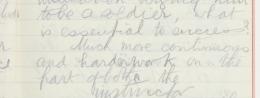 to be a soldier, what
is essential to success?
Much more continuous
and hard work on the
part of both the
instructor